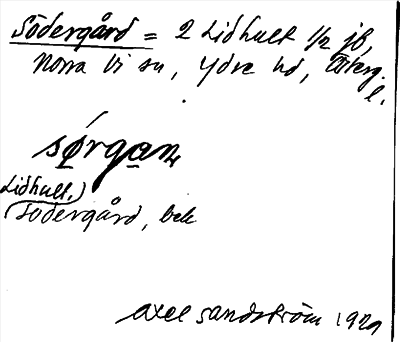 Södergård = 2 Lidhult 1/2 jb,
Norra Vi sn, Ydre hd, Österg.
l.
sǿrgan
Lidhult,)
Södergård, bek
Axel Sandström 1929